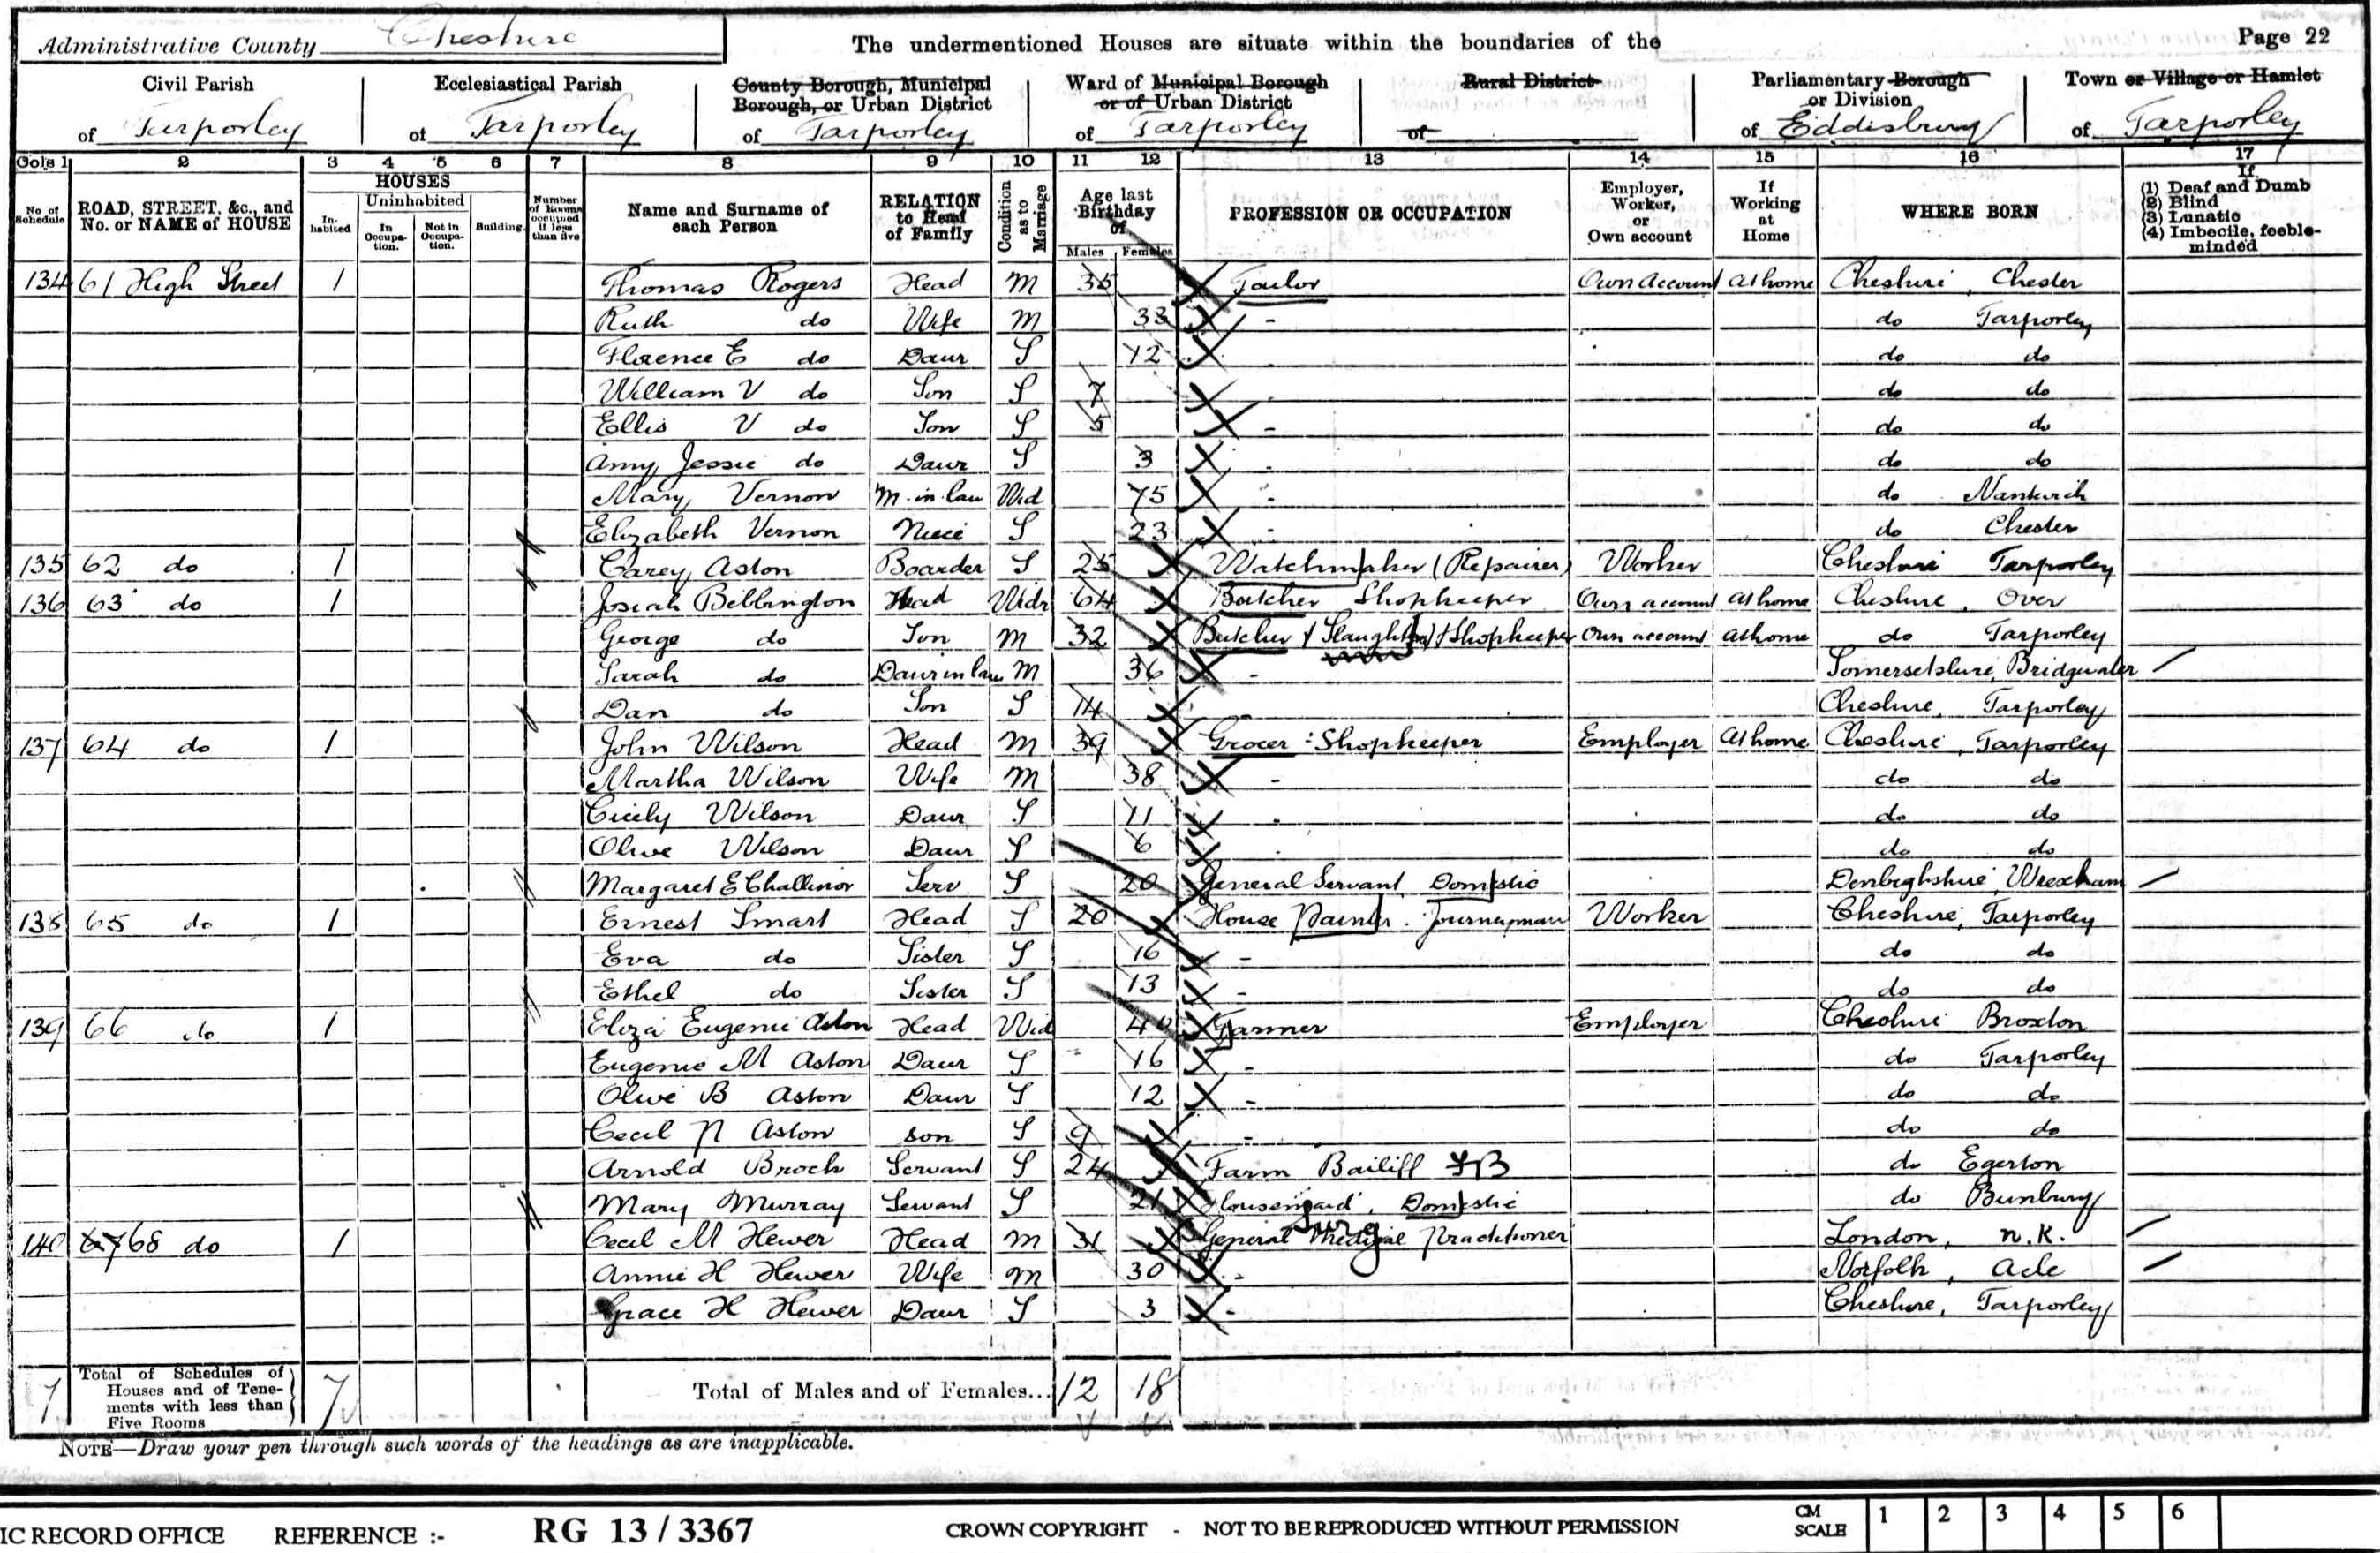 Administrative County Cheshire
The undermentioned Houses are situate within the boundaries of the
Page 22
Civil Parish of Tarporley
Ecclesiastical Parish of Tarporley
County Borough, Municipal Borough, or Urban District of Tarporley
Ward of Municipal Borough or of Urban District of Tarporley
Rural District of
Parliamentary Borough or Division of Eddisbury
Town or Village or Hamlet of Tarporley
Cols 1 2 3 4 5 6 7 8 9 10 11 12 13 14 15 16 17
No. of Schedule
ROAD, STREET, &c., and No. or NAME of HOUSE
HOUSES
Inhabited
Uninhabited
In Occupation.
Not in Occupation.
Building
Number of Rooms occupied if less than five
Name and Surname of each Person
RELATION to Head of Family
Condition as to Marriage
Age last Birthday of
Males Females
PROFESSION OR OCCUPATION
Employer, Worker, or Own account
If Working at Home
WHERE BORN
If (1) Deaf and Dumb (2) Blind (3) Lunatic (4) Imbecile, feeble-minded
134 61 High Street 1 Thomas Rogers Head M 35 Tailor Own Account At home Cheshire, Chester
Ruth do Wife M 33 - do Tarporley
Florence E do Daur S 12 do do
William V do Son S 7 - do do
Ellis V do Son S 5 - do do
Amy Jessie do Daur S 3 - do do
Mary Vernon M.in.law Wid 75 - do Nantwich
Elizabeth Vernon Niece S 23 - do Chester
135 62 do 1 Carey Aston Boarder S 25 Watchmaker (Repairer) Worker Cheshire Tarporley
136 63 do 1 Josiah Bebbington Head Widr 64 Butcher Shopkeeper Own account At home Cheshire, Over
George do Son M 32 Butcher Shopkeeper Own account At home do Tarporley
Sarah do Daur in law M 36 - Somersetshire, Bridgwater
Dan do Son S 14 - Cheshire, Tarporley
137 64 do 1 John Wilson Head M 39 Grocer : Shopkeeper Employer At home Cheshire, Tarporley
Martha Wilson Wife M 38 - do do
Cicely Wilson Daur S 11 - do do
Olive Wilson Daur S 6 - do do
Margaret E Challinor Serv S 20 General Servant Domestic Denbighshire, Wrexham
138 65 do 1 Ernest Smart Head S 20 House Painter. Journeyman Worker Cheshire, Tarporley
Eva do Sister S 16 - do do
Ethel do Sister S 13 - do do
139 66 do 1 Eliza Eugenie Aston Head Wid Farmer Employer Cheshire Broxton
Eugenie M Aston Daur S 16 - do Tarporley
Olive B Aston Daur S 12 - do do
Cecil N Aston Son S 9 - do do
Arnold Broch Servant S 24 Farm Bailiff do Egerton
Mary Murray Servant S 21 Housemaid, Domestic do Bunbury
140 67 68 do 1 Cecil M Hewer Head M 31 General Medical Practitioner Surg London, n.K.
Annie H Hewer Wife M 30 - Norfolk, Acle
Grace H Hewer Daur S 3 - Cheshire, Tarporley
7 Total of Schedules of Houses and of Tenements with less than Five Rooms 7
Total of Males and of Females... 12 18
NOTE—Draw your pen through such words of the headings as are inapplicable.
IC RECORD OFFICE REFERENCE :- RG 13 / 3367 CROWN COPYRIGHT - NOT TO BE REPRODUCED WITHOUT PERMISSION CM SCALE 1 2 3 4 5 6